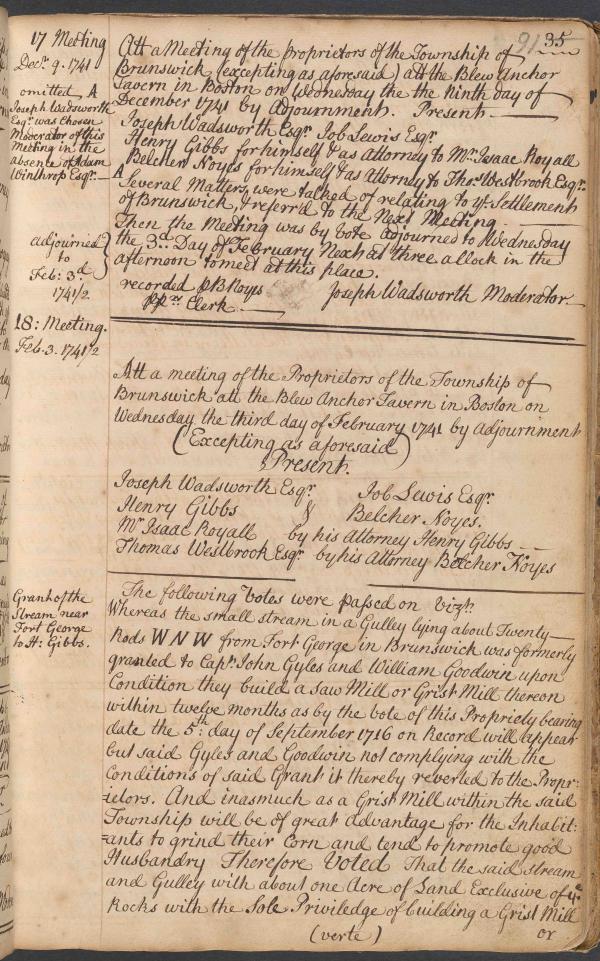 91 35
17 Meeting
Decr. 9. 1741
omitted A
Joseph Wadsworth
Esqr. was Chosen
Moderator of this
Meeting in the
absence of Adam
Winthrop Esqr.
Att a Meeting of the Proprietors of the Township of
Brunswick (excepting as aforesaid) att the Blew Anchor
Tavern in Boston on Wednesday the the Ninth day of
December 1741 by Adjournment. Present
Joseph Wadsworth Esqr. Job Lewis Esqr.
Henry Gibbs for himself & as Attorney to Mr. Isaac Royall
Belcher Noyes for himself & as Attorney to Thos. Westbrook Esqr.
A Several Matters were talked of relating to ye. Settlement
of Brunswick, & referr'd to the Next Meeting
Then the Meeting was by Vote adjourned to Wednesday
the 3d. Day of February Next at three a Clock in the
afternoon to meet at this place.
adjourned
to
Feb: 3d
1741/2
recorded p B Noyes
Ppr. Clerk.
Joseph Wadsworth Moderator
18: Meeting.
Feb. 3. 1741/2
Att a meeting of the Proprietors of the Township of
Brunswick att the Blew Anchor Tavern in Boston on
Wednesday the third day of February 1741 by Adjournment
(Excepting as aforesaid)
Present.
Joseph Wadsworth Esqr. Job Lewis Esqr.
Henry Gibbs & Belcher Noyes.
Mr. Isaac Royall by his Attorney Henry Gibbs
Thomas Westbrook Esqr. by his Attorney Belcher Noyes
Grant of the
Stream near
Fort George
to H: Gibbs.
The following Votes were passed on Vizt.
Whereas the small stream in a Gulley lying about Twenty
Rods WNW from Fort George in Brunswick was formerly
granted to Capt. John Gyles and William Goodwin upon
Condition they build a saw Mill or Grist Mill thereon
within twelve months as by the Vote of this Propriety bearing
date the 5th: day of September 1716 on Record will appear
but said Gyles and Goodwin not complying with the
Conditions of said Grant it thereby reverted to the Propr=
=ietors. And inasmuch as a Grist Mill within the said
Township will be of great advantage for the Inhabit:
=ants to grind their Corn and tend to promote good
Husbandry Therefore Voted That the said stream
and Gulley with about one Acre of Land Exclusive of ye.
Rocks with the Sole Priviledge of building a Grist Mill
(verte) or